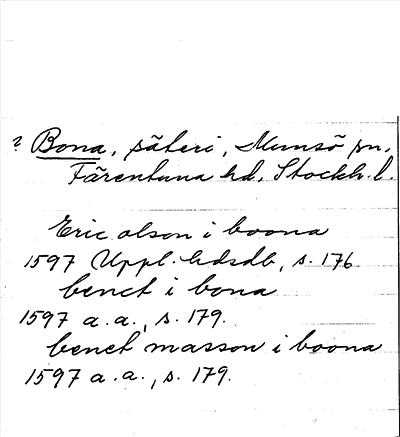 ? Bona, säteri, Munsö sn.
Färentuna hd, Stockh. l.
Eric olson i boona
1597 Uppl. hdsdb, s. 176
benct i bona
1597 a. a., s. 179.
benct masson i boona
1597 a. a., s. 179.